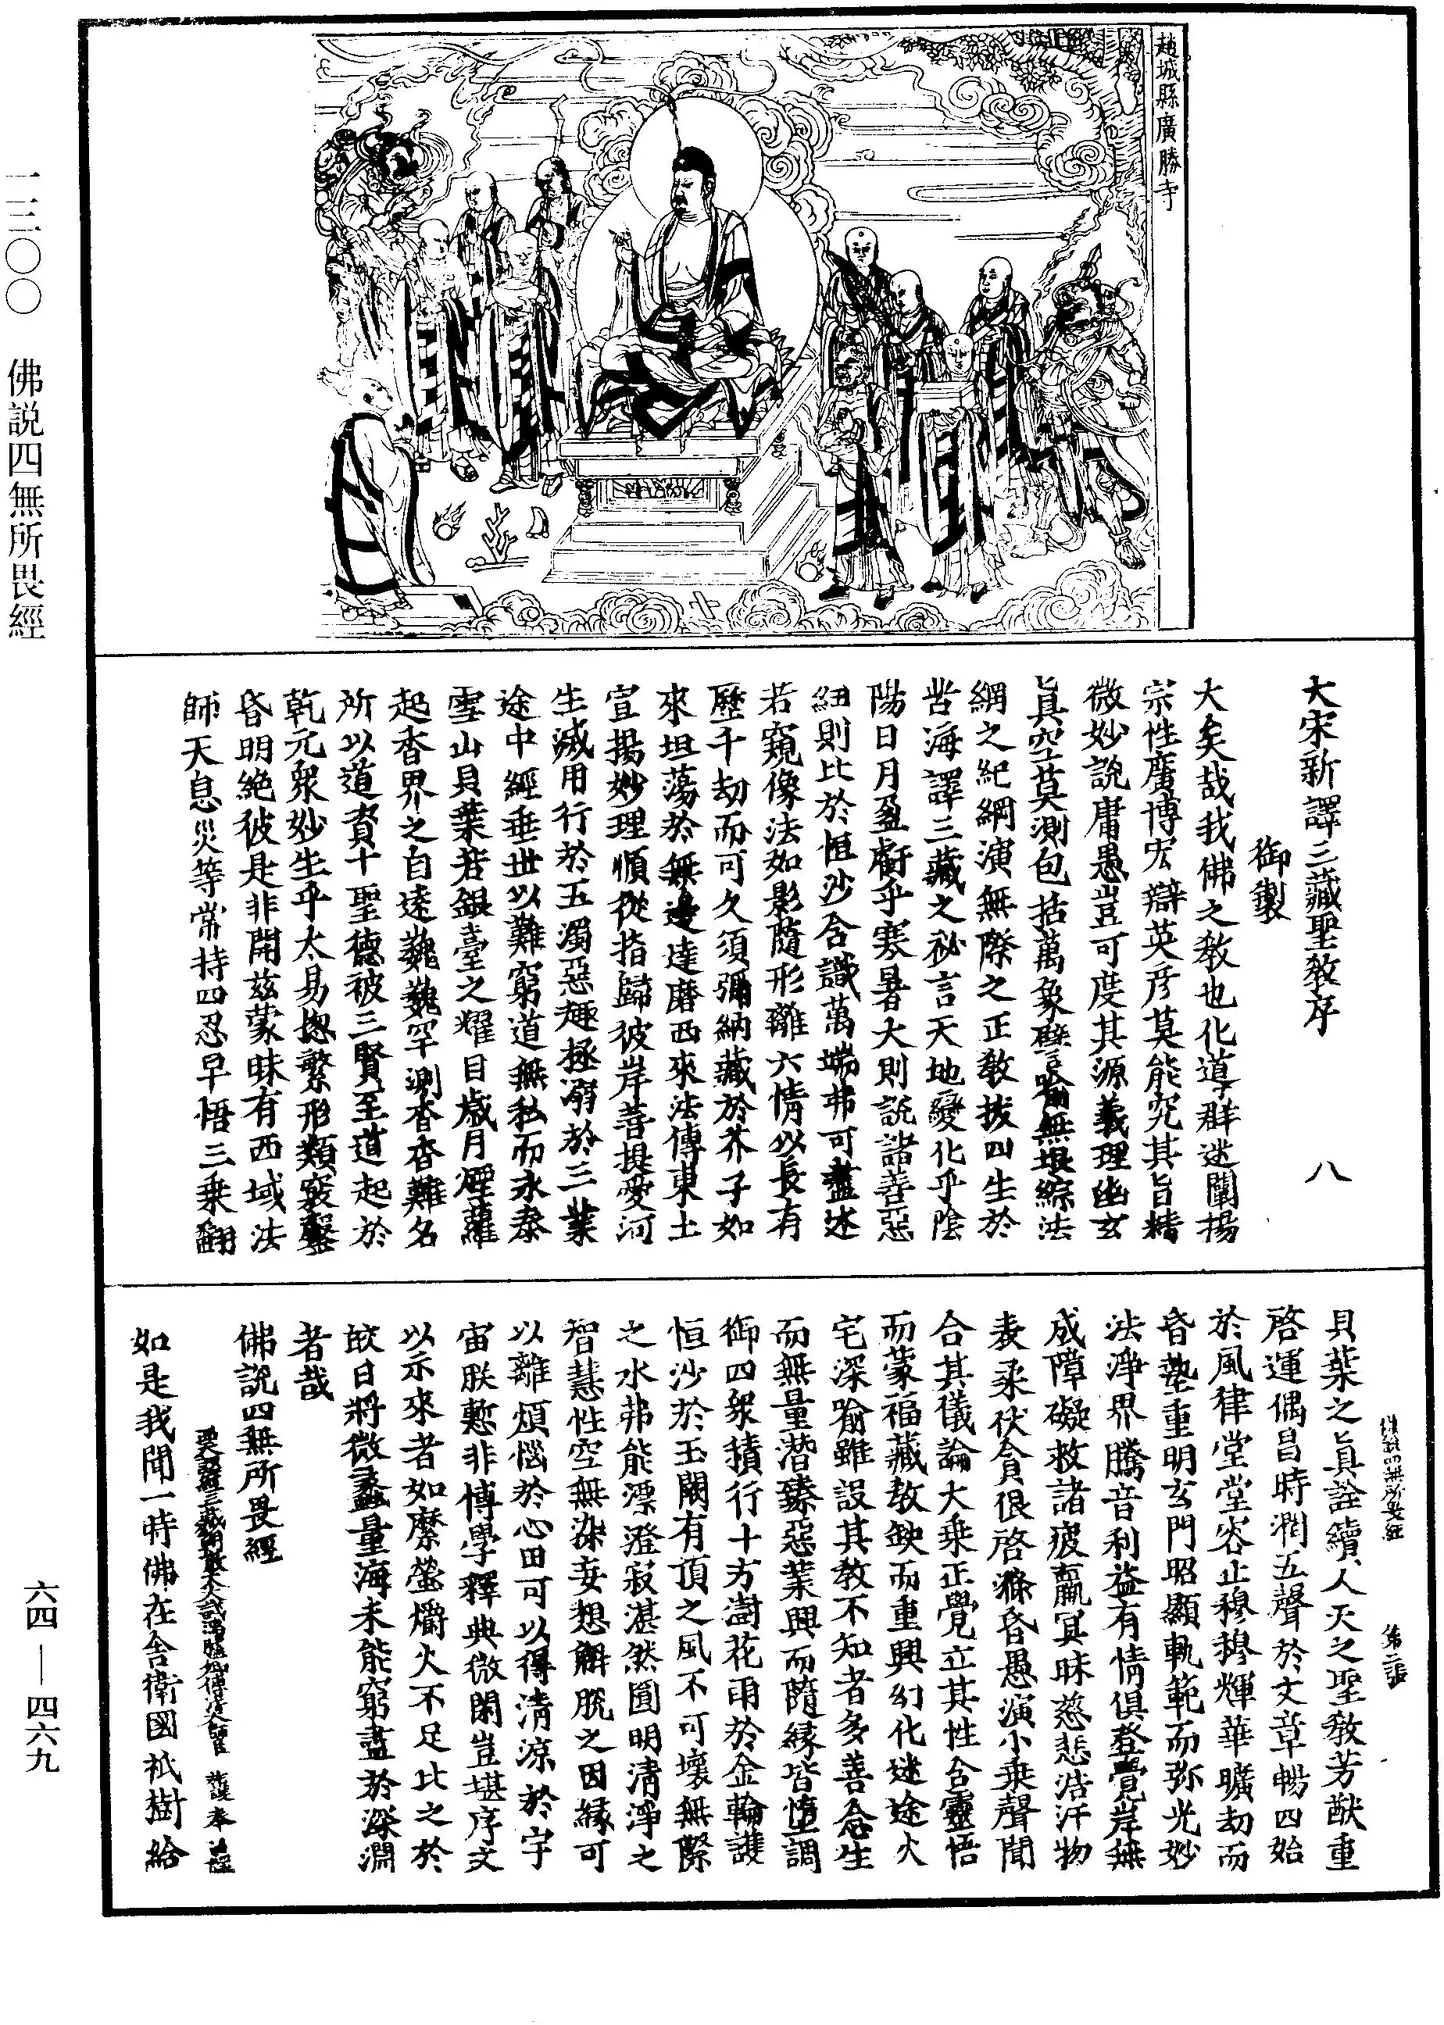 一三〇〇　佛説四無所畏經
六四—四六九
趙城縣廣勝寺
大宋新譯三藏聖教序　八
御製
大矣哉我佛之教也化導群迷闡揚
宗性廣博宏辯英彦莫能究其旨精
微妙説庸愚豈可度其源義理幽玄
真空莫測包括萬象譬喻無垠綜法
網之紀綱演無際之正教拔四生於
苦海譯三藏之秘言天地變化乎陰
陽日月盈虧乎寒暑大則説諸善惡
細則比於恒沙含識萬端弗可盡述
若窺像法如影隨形離六情以長存
歷千劫而可久須彌納藏於芥子如
來坦蕩於無邊達磨西來法傳東土
宣揚妙理順從指歸彼岸菩提愛河
生滅用行於五濁惡趣極溺於三業
途中經垂世以難窮道無私而永泰
雪山貝葉若銀臺之耀目歲月煙蘿
起香界之自遠巍巍罕測杳杳難名
所以道資十聖德被三賢至道起於
乾元衆妙生乎太易揔繁形類竅鑿
昏明絶彼是非開兹蒙昧有西域法
師天息災等常持四忍早悟三乘翻
佛説四無所畏經　第二張
貝葉之真詮續人天之聖教芳猷重
啓運偶昌時潤五聲於文章暢四始
於風律堂堂容止穆穆輝華曠劫而
昏墊重明玄門昭顯軌範而弥光妙
法淨界騰音利益有情俱登覺岸無
成障礙救諸疲羸冥昧慈悲浩汗物
表柔伏貪很啓滌昏愚演小乘聲聞
合其儀論大乘正覺立其性含靈悟
而蒙福藏教缺而重興幻化迷途火
宅深喻雖設其教不知者多善念生
而無量潛臻惡業興而隨縁皆墮調
御四衆積行十方澍花雨於金輪護
恒沙於玉闕有頂之風不可壞無際
之水弗能漂澄寂湛然圓明清淨之
智慧性空無染妄想解脱之因縁可
以離煩惱於心田可以得清涼於宇
宙朕慙非博學釋典微閑豈堪序文
以示來者如縻螢爝火不足比之於
皎日將微蠡量海未能窮盡於深淵
者哉
佛説四無所畏經
如是我聞一時佛在舍衛國祇樹給